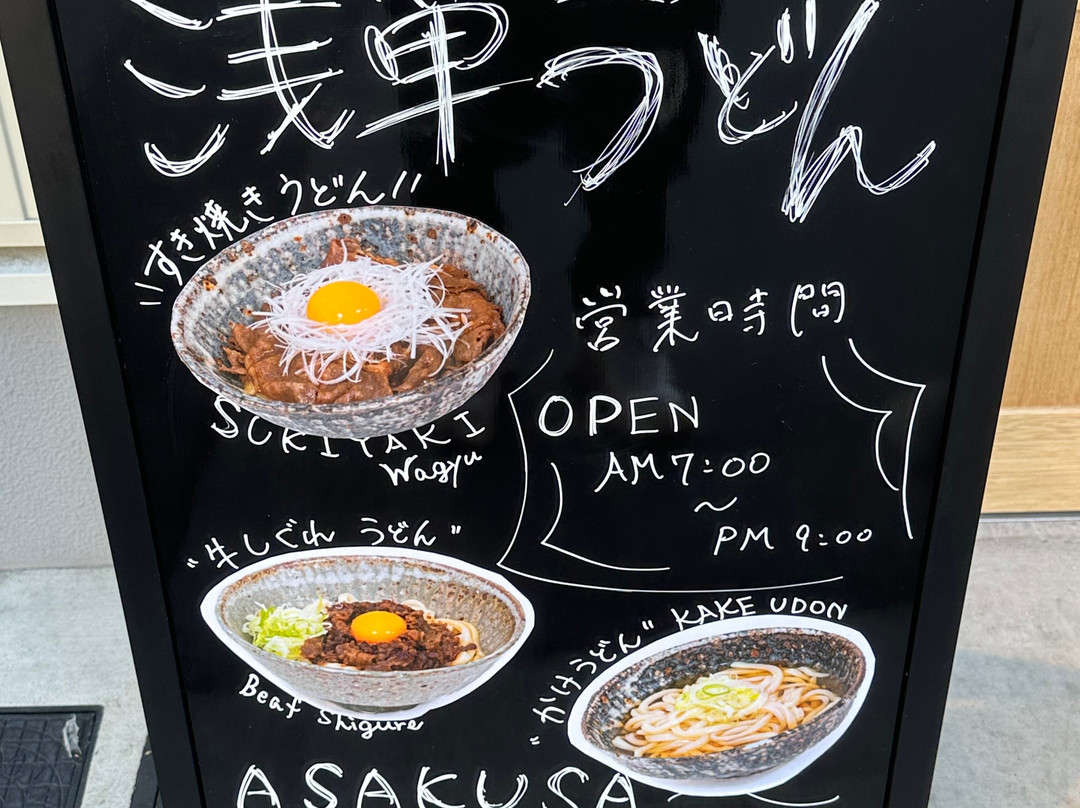 浅草うどん
すき焼きうどん
SUKIYAKI
Wagyu
営業時間
OPEN
AM7:00
～
PM 9:00
"牛しぐれ うどん"
Beaf Shigure
"かけうどん" KAKE UDON
ASAKUSA